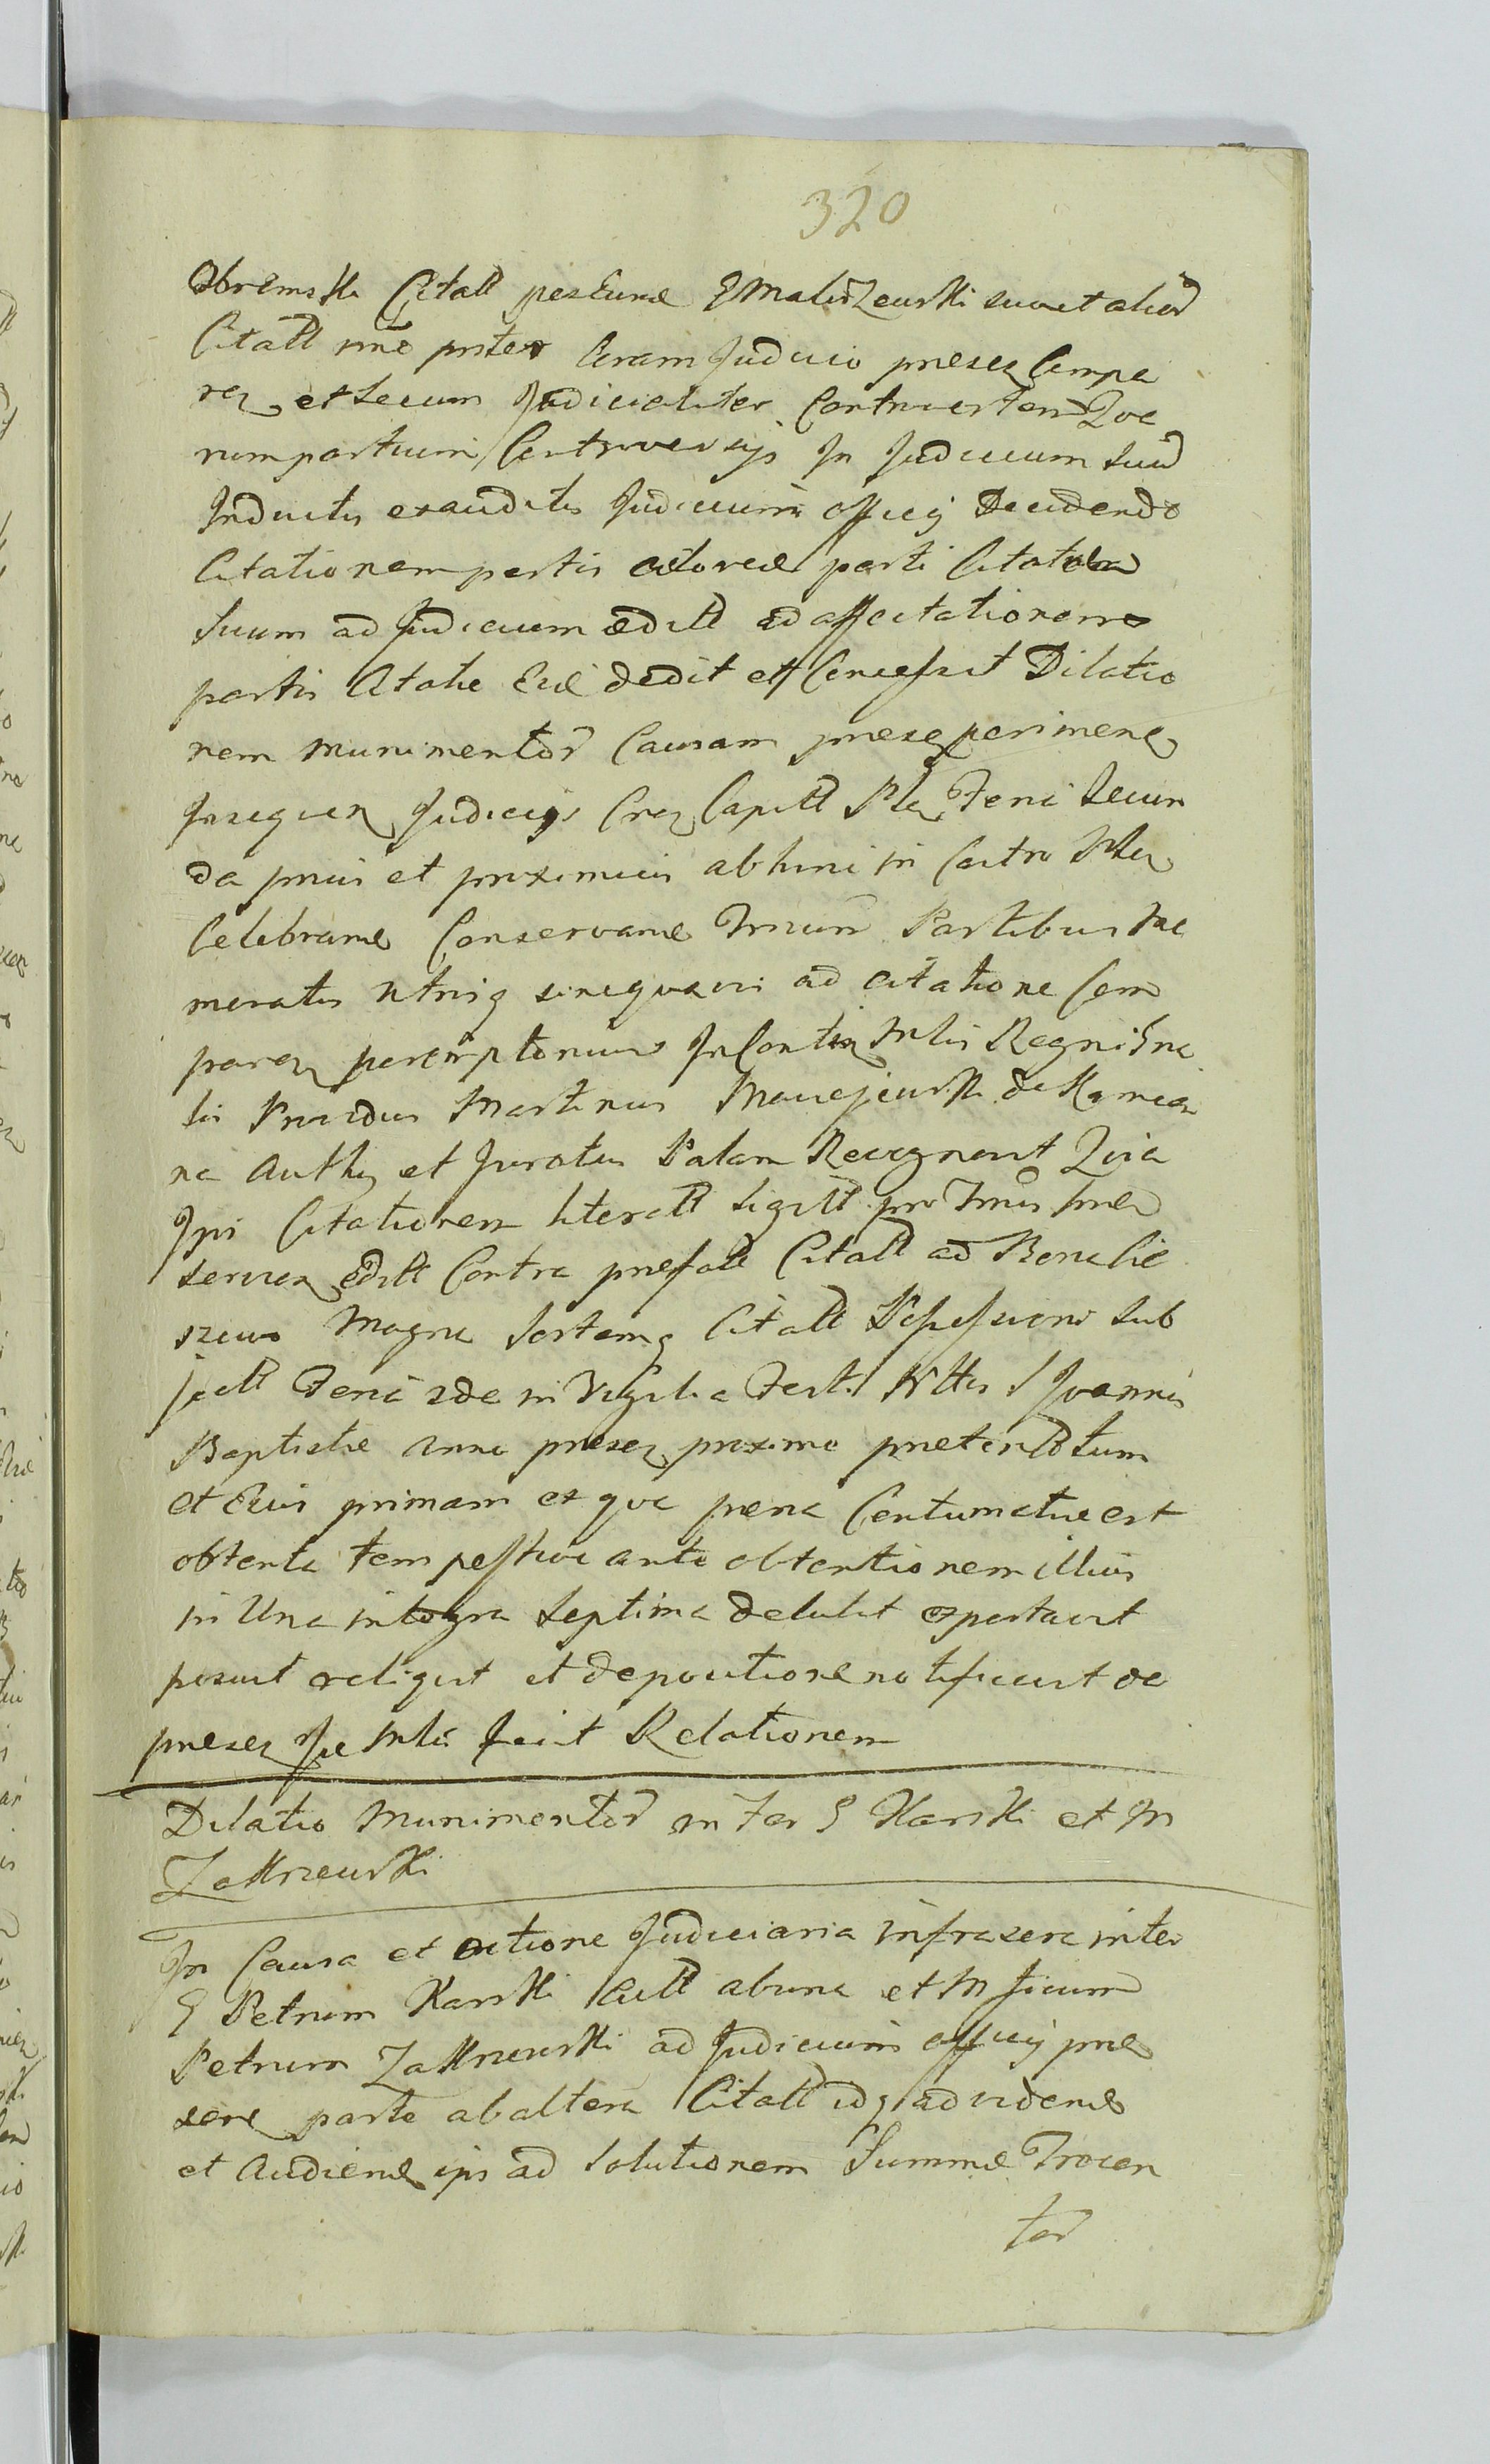 320
Obremski Citatt per Eund G Maluszewski suo et alior
Citatt nne pnter Coram Judicio presez Compa
rez et secum Judicialiter Controverten Quo
rum partium Controversijs In Judicium suu
Inductis exauditis Judicium officij Decidendo
Citationem partis actoreae parti Citatae
suum ad Judicium editt ad affectationem
partis Citatae Eid dedit et Concessit Dilatio
nem munimentor Causam presez perimen
Insequen Judicijs Crez Capitt Feria Secun
da pmis et proximis abhinc in Castro
Celebrand Conservand Tnum Partibus me
moratis utrisq ad citatione Com
parez peremptorium In Conti Mlis Regni Gna
lis Providus Martinus Maciejewski de Kamion
na Authen et Juratus Palam Recognovit Quia
Ipse Citationem literatt sigill pro Tnis pned
servien editt Contra prefatt Citatt ad Bona Cie
szewo Magna sortemq Citatt Possessioni sub
jectt Feria 2da in Vigilia Festi S Joannis
Baptistae anno presez proximo preteritum
et Eius primam ex qua pena Contumatiae est
obtenta tempestive ante obtentionem illius
in Una integra Septima detulit exportavit
posuit reliquit et de positione notificavit de
presez Jie Mli fecit Relationem
Dilatio Munimentor inter G Karski et M
Zakrzewski
In Causa et actione Judiciaria infrascra inter
G Petrum Karski Actt ab una et Mficum
Petrum Zakrzewski ad Judicium officij pre
sens parte ab altera Citatt idq ad vidend
et Audiend ips ad Solutionem Summae Trecen
tar